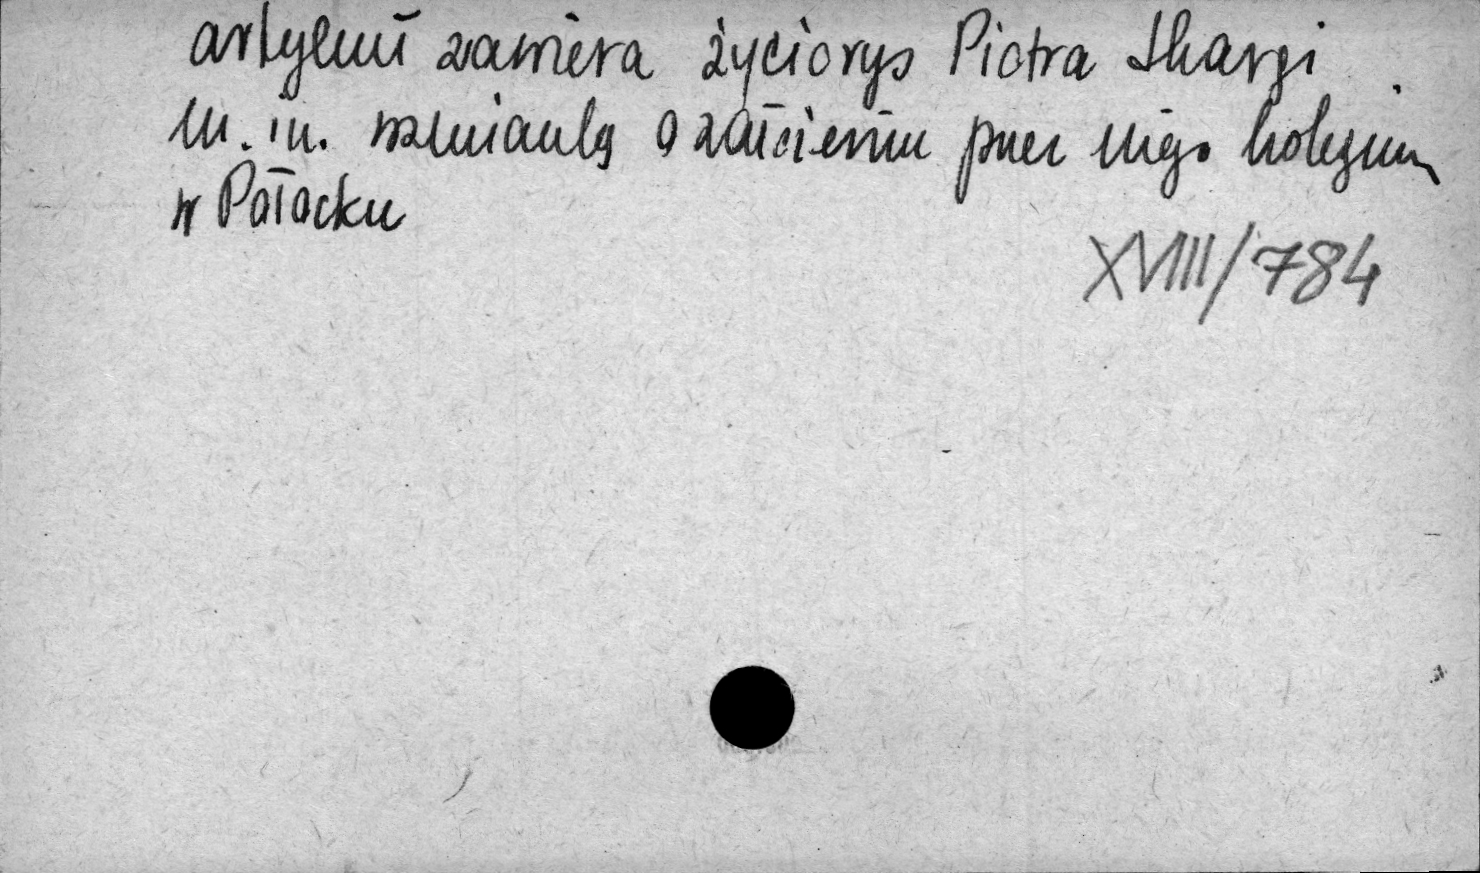 artykuł zawiera życiorys Piotra Skargi
m. in. wzmiankę o założeniu przez niego kolegium
w Połocku
XVIII/784